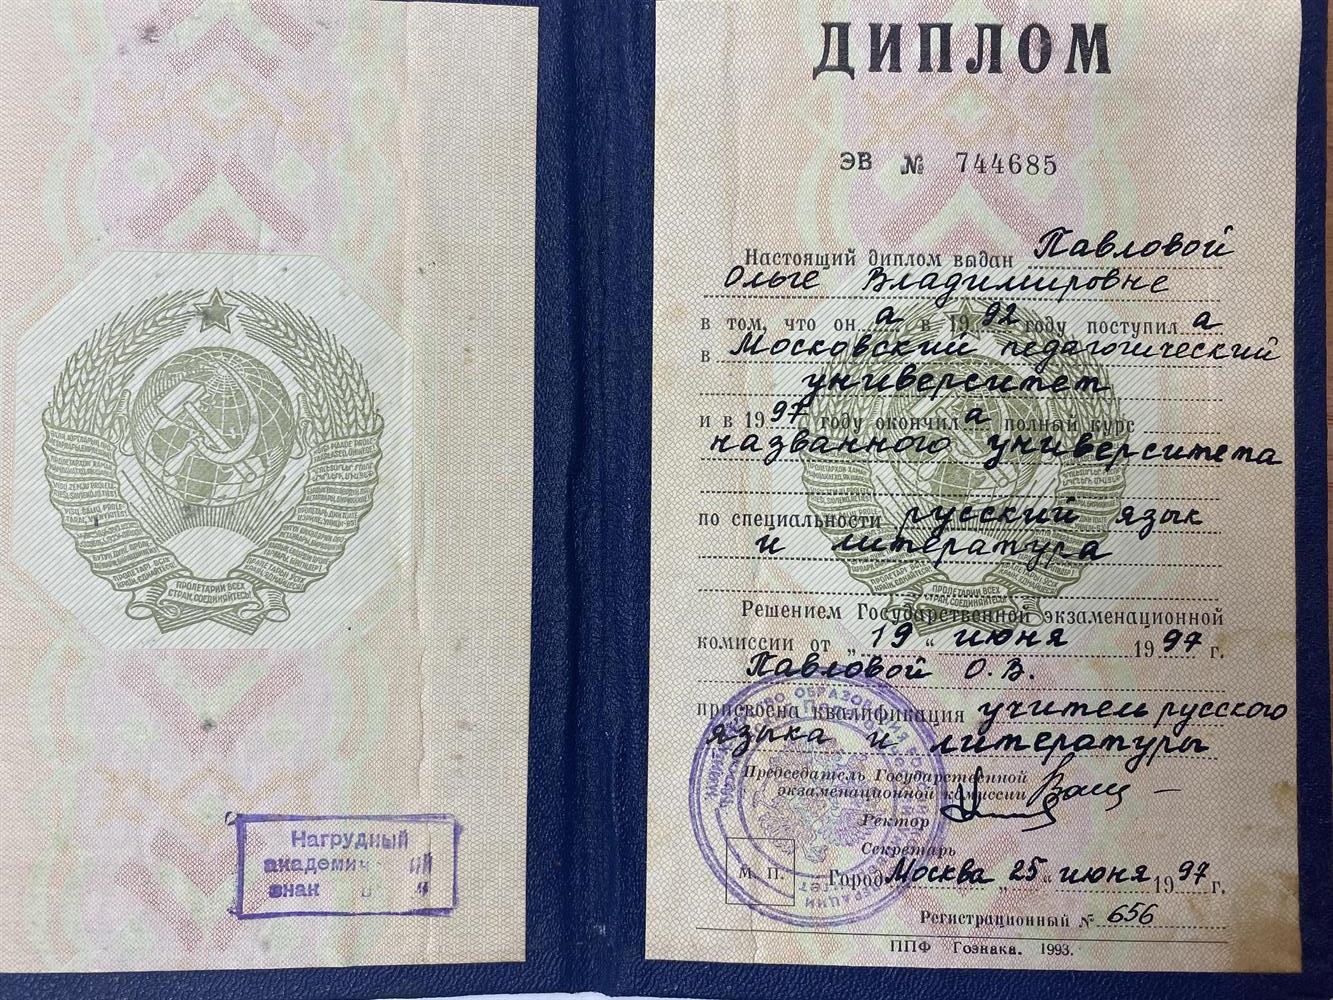 ПРОЛЕТАРИИ ВСЕХ
СТРАН, СОЕДИНЯЙТЕСЬ!
Нагрудный
академич
знак
ДИПЛОМ
ЭВ № 744685
Настоящий диплом выдан Павловой
Ольге Владимировне
в том, что он а в 19 92 году поступил а
в Московский педагогический
университет
и в 19 97 году окончил а полный курс
названного университета
по специальности русский язык
и литература
ПРОЛЕТАРИИ ВСЕХ
СТРАН, СОЕДИНЯЙТЕСЬ!
Решением Государственной экзаменационной
комиссии от „ 19 “ июня 19 97 г.
Павловой О.В.
присвоена квалификация учитель русского
языка и литературы
Председатель Государственной
экзаменационной комиссии
Ректор
Секретарь
М. П. Город Москва „ 25 “ июня 19 97 г.
Регистрационный № 656
ППФ Гознака. 1993.